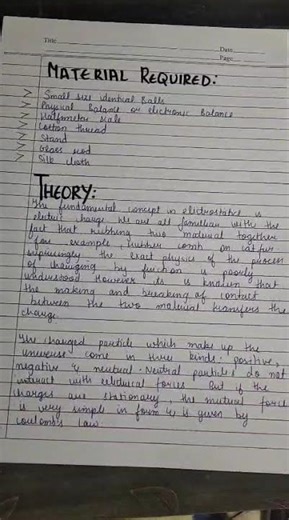 Title
Date
Page
MATERIAL REQUIRED:
> Small size identical balls
> Physical balance or electronic balance
> Halfmeter scale
> Cotton thread
> Stand
> Glass rod
> Silk cloth
THEORY:
The fundamental concept in electrostatic is
electric charge. We are all familiar with the
fact that rubbing two material together
for example, rubber comb on cat fur
surprisingly the exact physics of the process
of changing by function is poorly
understood However its is known that
the making and breaking of contact
between the two material transfers the
charge.
The charged particle which make up the
universe come in three kinds: positive,
negative & neutral. Neutral particles do not
interact with electrical forces But if the
charges are stationary, the mutual force
is very simple in form & is given by
coulomb's law.